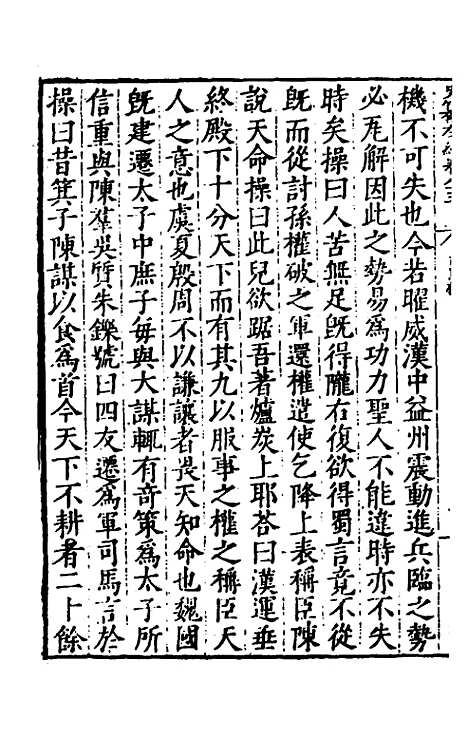 機不可失也今若曜威漢中益州震動進兵臨之勢
必瓦解因此之勢易爲功力聖人不能違時亦不失
時矣操曰人苦無足旣得隴右復欲得蜀言竟不從
旣而從討孫權破之軍還權遣使乞降上表稱臣陳
說天命操曰此兒欲踞吾著爐炭上耶荅曰漢運垂
終殿下十分天下而有其九以服事之權之稱臣天
人之意也虞夏殷周不以謙讓者畏天知命也魏國
旣建遷太子中庶子每與大謀輒有奇策爲太子所
信重與陳羣吳質朱鑠號曰四友遷爲軍司馬言於
操曰昔箕子陳謀以食爲首今天下不耕者二十餘